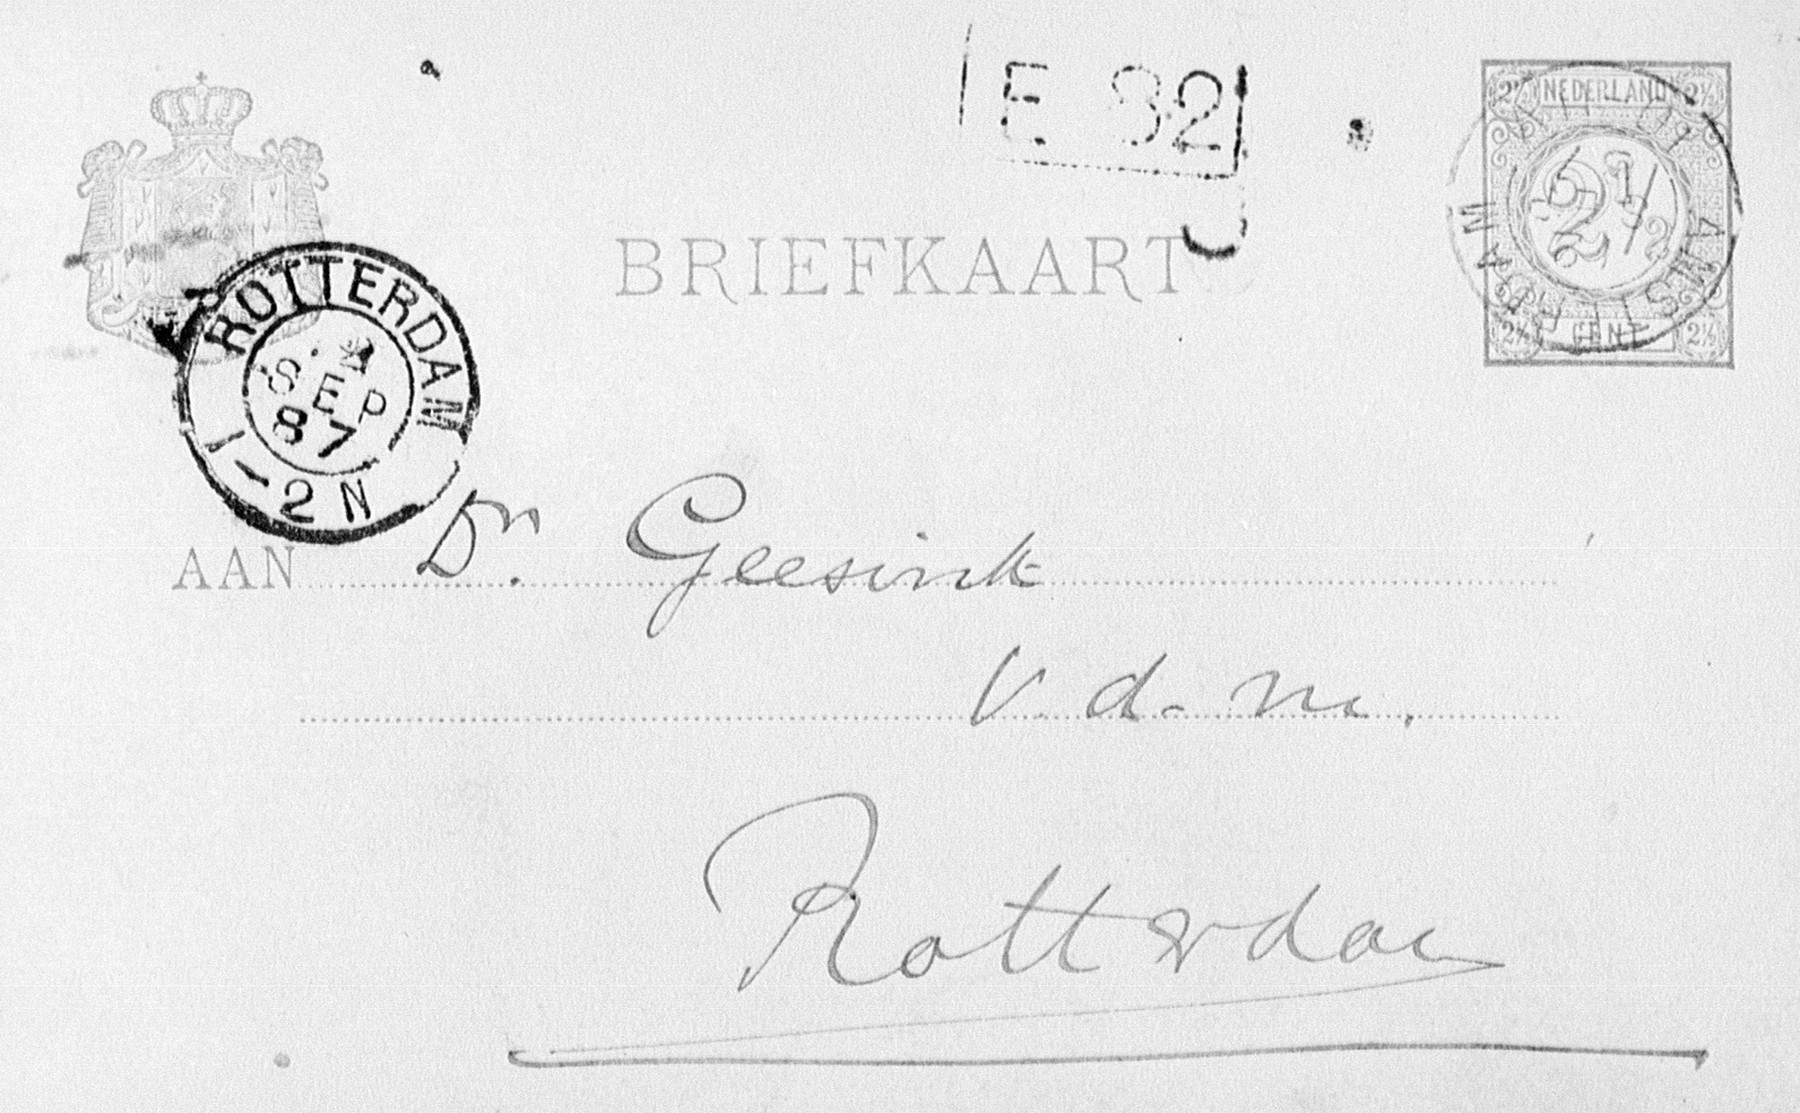 E 32
2½ NEDERLAND 2½
2½ CENT 2½
AMSTERDAM
BRIEFKAART
ROTTERDAM
SEP
87
1-2N
AAN Dr. Geesink
V. d. m.
Rotterdam